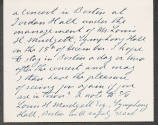 a concert in Boston at
Jordan Hall under the
management of Mr. Louis
H. Mudgett, Symphony Hall
on the 15th of December. I hope
to stay in Boston a day or two
after the concert and may
I then have the pleasure
of seeing you again if we
are in town? A note to
Louis H. Mudgett Esq. Symphony
Hall, Boston will safely reach